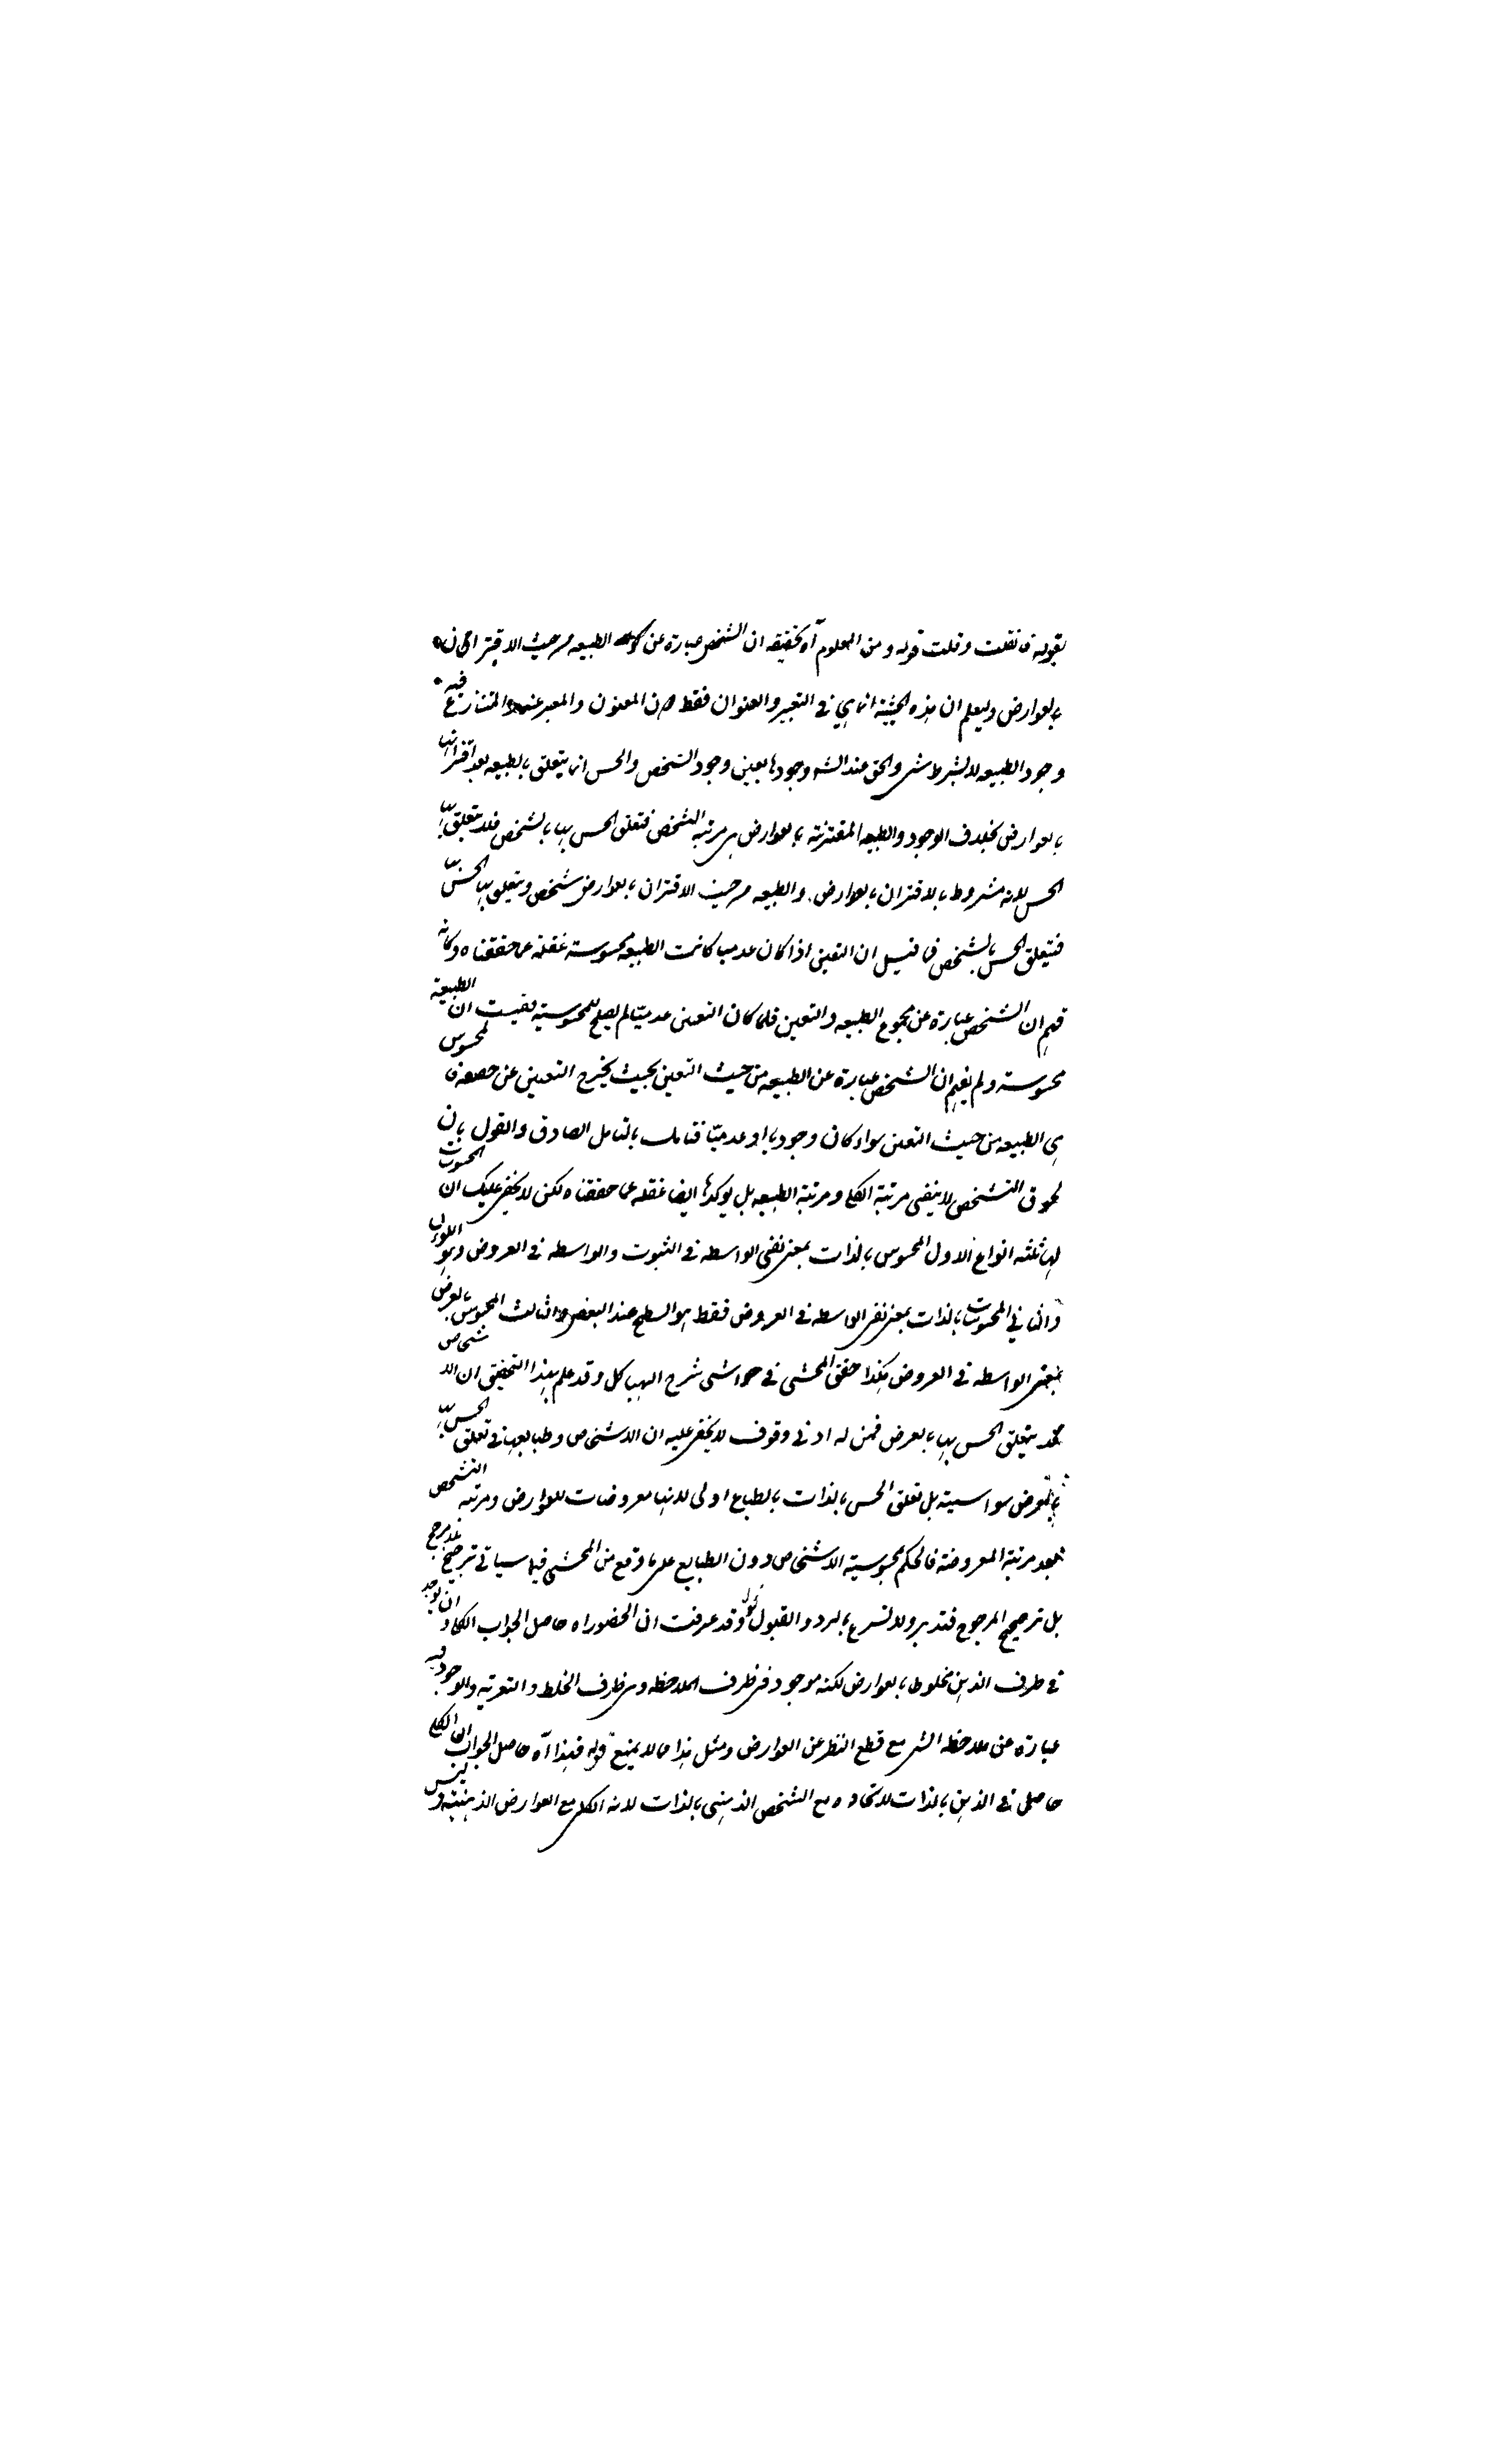 بقوله فان قلت وقلت قوله ومن المعلوم آه تحقيقه ان الشخص عبارة عن الطبيعه من حيث الاقتران
بالعوارض وليعلم ان هذه الحيثية انما هي في التعبير والعنوان فقط دون المعنون والمعبر عنه والمتنازع فيه
وجود الطبيعه لا بشرط شئ والحق عند الش وجودها بعين وجود الشخص والحس انما يتعلق بالطبيعه بعد اقترانها
بالعوارض بخلاف الوجود والطبيعه المقترنة بالعوارض هي مرتبة الشخص فتعلق الحس بها بالشخص فلا يتعلق بها
الحس لانه مشروط بالاقتران بالعوارض والطبيعه من حيث الاقتران بالعوارض شخص ويتعلق بها الحس
فيتعلق الحس بالشخص فما قيل ان التعين اذا كان عدميا كانت الطبيعه محسوسة غفلة عما حققناه وكانه
فهم ان الشخص عبارة عن مجموع الطبيعه والتعين فلما كان التعين عدميا لم يصلح للمحسوسية فبقيت ان الطبيعة
محسوسة ولم يفهم ان الشخص عبارة عن الطبيعه من حيث التعين بحيث يخرج التعين عن فالمحسوس
هي الطبيعه من حيث التعين سواء كان وجوديا او عدميا فتامل بالتامل الصادق والقول بان
لحوق التشخص لا ينفي مرتبة الكلي ومرتبة الطبيعه بل يوكدها ايضا غفلة عما حققناه لكن لا يخفى عليك ان المحسوسات
لها ثلثة انواع الاول المحسوس بالذات بمعنى نفي الواسطه في الثبوت والواسطه في العروض وهو
والثاني المحسوسات بالذات بمعنى نفي الواسطه في العروض فقط هو السطح عند البعض والثالث المحسوس بالعرض
بمعنى الواسطه في العروض هكذا حقق المحشي في حواشي شرح الهياكل وقد علم بهذا التحقيق ان الاشخاص
مما يتعلق الحس بها بالعرض فمن له ادنى وقوف لا يخفى عليه ان الاشخاص وطبايعها في تعلق الحس بها
بالعرض سواسية بل تعلق الحس بالذات بالطبايع اولى لانها معروضات للعوارض ومرتبه التشخص
بعد مرتبة المعروضة فالحكم بمحسوسية الاشخاص دون الطبايع على ما وقع من المحشي فيما سياتي ترجيح بلا مرجح
بل ترجيح المرجوح فتدبر ولا تسرع بالرد والقبول قوله وقد عرفت ان الحضور اه حاصل الجواب ان يوجد
في ظرف الذهن مخلوطا بالعوارض لكنه موجود في ظرف الملاحظه وهي ظرف الخلط والتعرية والوجود فيه
عبارة عن ملاحظه الشئ مع قطع النظر عن العوارض ومثل هذا مما لا يمنع قوله فهذا آه حاصل الجواب ان الكلي
حاصل في الذهن بالذات لاتحاده مع الشخص الذهني بالذات لانه الكلي مع العوارض الذهنية وليس